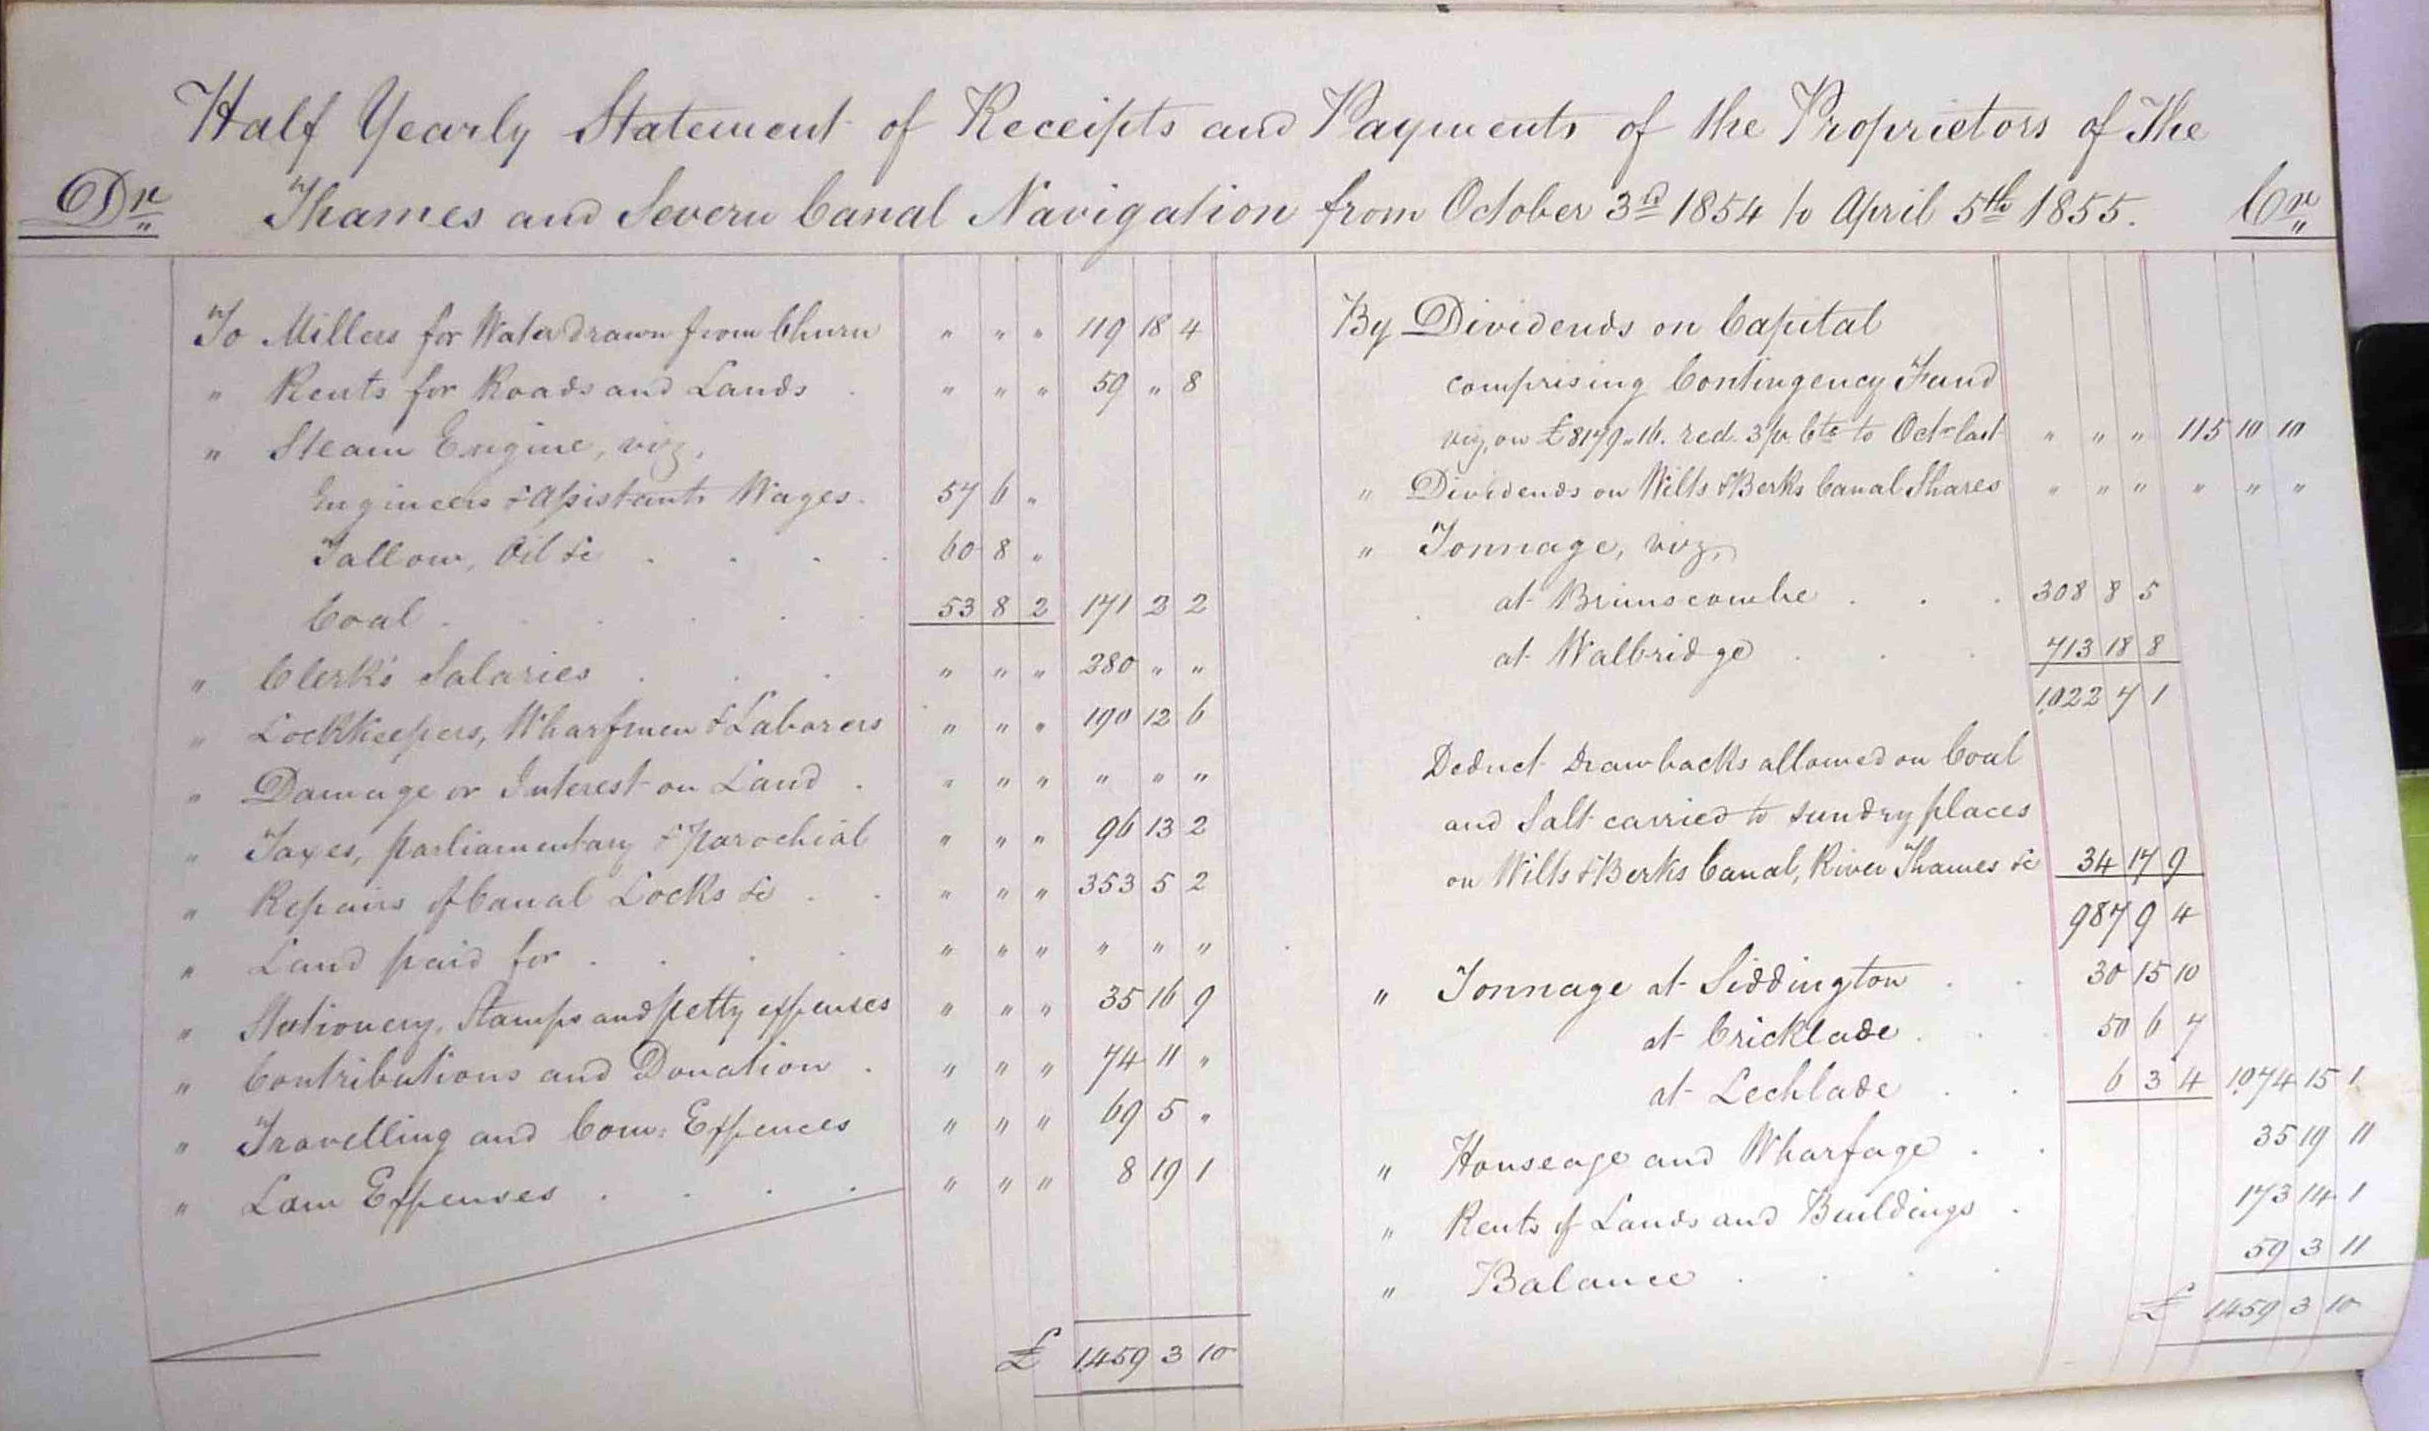 Half Yearly Statement of Receipts and Payments of the Proprietors of The
Dr Thames and Severn Canal Navigation from October 3rd 1854 to April 5th 1855. Cr
To Millers for Water drawn from Churn " " " 119 18 4
" Rents for Roads and Lands . " " " 59 " 8
" Steam Engine, viz,
Engineers & Assistants Wages . 57 6 "
Tallow, Oil &c . . . . 60 8 "
Coal . . . . . 53 8 2 171 2 2
" Clerk's Salaries . . . " " " 280 " "
" Lockkeepers, Wharfmen & Laborers " " " 190 12 6
" Damage or Interest on Land . " " " " " "
" Taxes, parliamentary & parochial " " " 96 13 2
" Repairs of Canal Locks &c . . " " " 353 5 2
" Land paid for . . . " " " " " "
" Stationery, Stamps and petty expenses " " " 35 16 9
" Contributions and Donation . " " " 74 11 "
" Travelling and Com: Expences " " " 69 5 "
" Law Expenses . . . . " " " 8 19 1
£ 1459 3 10
By Dividends on Capital
comprising Contingency Fund
viz, on £8179 " 16. red. 3 pr Cts to Octr last " " " 115 10 10
" Dividends on Wilts & Berks Canal Shares " " " " " "
" Tonnage, viz,
at Brimscombe . . . 308 8 5
at Walbridge . . . 713 18 8
1022 7 1
Deduct drawbacks allowed on Coal
and Salt carried to sundry places
on Wilts & Berks Canal, River Thames &c 34 17 9
987 9 4
" Tonnage at Siddington . . 30 15 10
at Cricklade . . 50 6 7
at Lechlade . . 6 3 4 1074 15 1
" Houseage and Wharfage . . 35 19 11
" Rents of Lands and Buildings . 173 14 1
" Balance . . . . 59 3 11
£ 1459 3 10